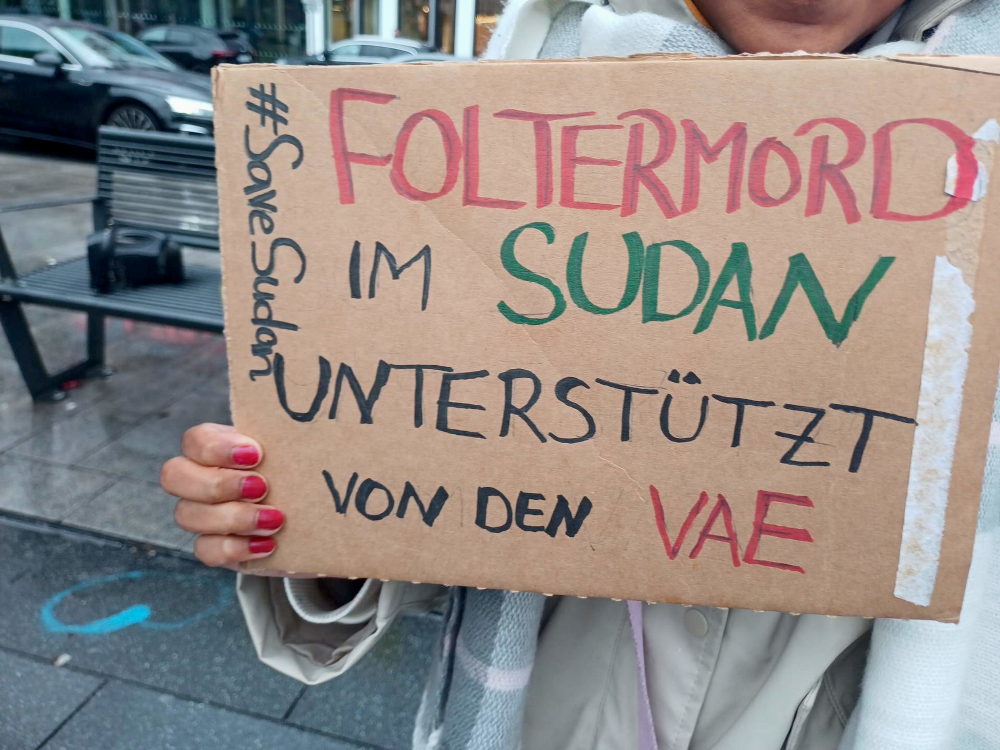 #SaveSudan
FOLTERMORD
IM SUDAN
UNTERSTÜTZT
VON DEN VAE